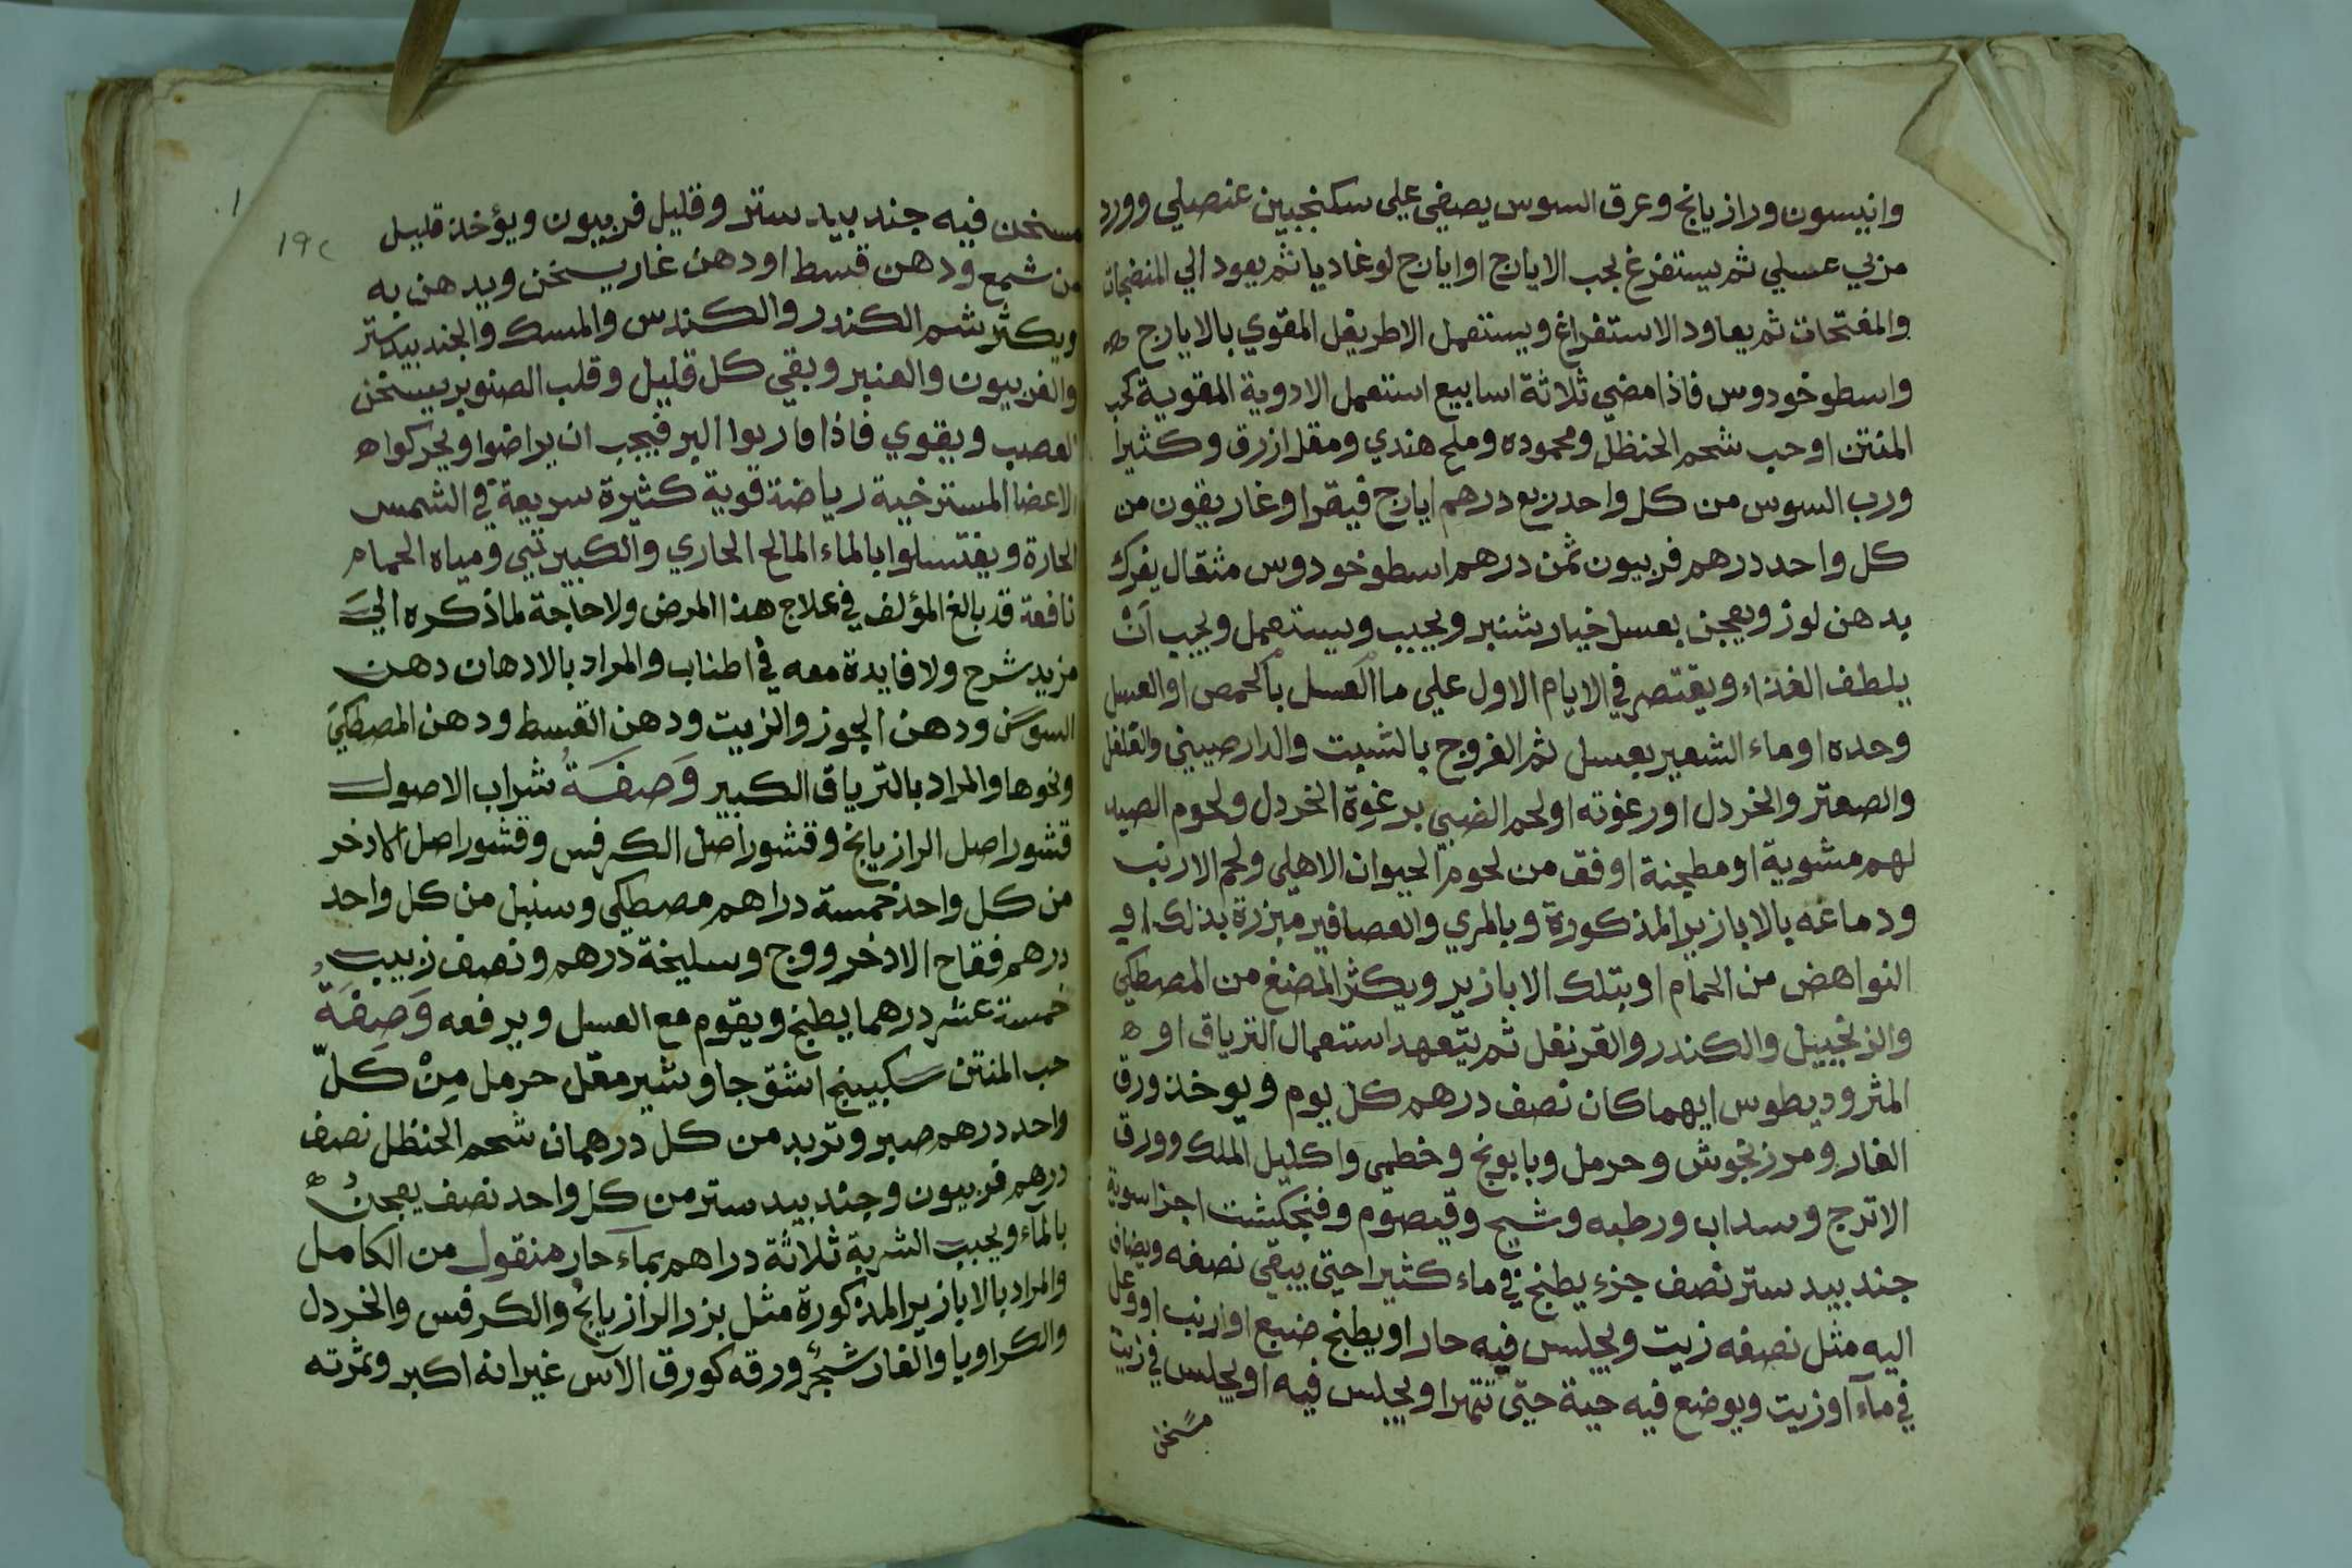 وانيسون ورازيانج وعرق السوس يصفي علي سكنجبين عنصلي وورد
مربي عسلي ثم يستفرغ بحب الايارج او ايارج لوغاديا ثم يعود الي المنضجات
والمفتحات ثم يعاود الاستفراغ ويستعمل الاطريفل المقوي بالايارج ه
واسطوخودوس فاذا مضي ثلاثة اسابيع استعمل الادوية المقوية كحب
المنتن او حب شحم الحنظل ومحموده وملح هندي ومقل ازرق وكثيرا
ورب السوس من كل واحد ربع درهم ايارج فيقرا وغاريقون من
كل واحد درهم فربيون ثمن درهم اسطوخودوس مثقال يفرك
بدهن لوز ويعجن بعسل خيار شنبر ويحبب ويستعمل ويجب اَنْ
يلطف الغذاء ويقتصر في الايام الاول علي ما العسل بالحمص او العسل
وحده او ماء الشعير بعسل ثم الفروج بالشبت والدارصيني والفلفل
والصعتر والخردل او رغوته او لحم الضبي برغوة الخردل ولحوم الصيد
لهم مشوية او مطجنة اوفق من لحوم الحيوان الاهلي ولحم الارنب
ودماغه بالابازير المذكورة وبالمري والعصافير مبزرة بذلك او
النواهض من الحمام او بتلك الابازير ويكثر المضغ من المصطكي
والزنجبيل والكندر والقرنفل ثم يتعهد استعمال الترياق او ه
المثروديطوس ايهما كان نصف درهم كل يوم ويوخذ ورق
الغار ومرزنجوش وحرمل وبابونج وخطمي واكليل الملك وورق
الاترج وسداب ورطبه وشيح وقيصوم وفنجكشت اجزا سوية
جندبيدستر نصف جزء يطبخ في ماء كثيرا حتي يبقي نصفه ويضاف
اليه مثل نصفه زيت ويجلس فيه حارا ويطبخ ضبع او ارنب او وعل
في مآء او زيت ويوضع فيه حية حتي تتهرا ويجلس فيه او يجلس في زيت
مسخن
١٩٢
مسخن فيه جندبيدستر وقليل فربيون ويؤخذ قليل
من شمع ودهن قسط او دهن غار يسخن ويدهن به
ويكثر شم الكندر والكندس والمسك والجندبيدستر
والفربيون والعنبر وبقي كل قليل وقلب الصنوبر يسخن
العصب ويقوي فاذا قاربوا البر فيجب ان يراضوا ويحركوا ه
الاعضا المسترخية رياضة قوية كثيرة سريعة في الشمس
الحارة ويغتسلوا بالماء المالح الحاري والكبيرتيي ومياه الحمام
نافعة قد بالغ المؤلف في علاج هذا المرض ولا حاجة لما ذكره الي
مزيد شرح ولا فايدة معه في اطناب والمراد بالادهان دهن
السوسن ودهن الجوز والزيت ودهن القسط ودهن المصطكي
ونحوها والمراد بالترياق الكبير وَصِفَةُ شراب الاصول
قشور اصل الرازيانج وقشور اصل الكرفس وقشور اصل الاذخر
من كل واحد خمسة دراهم مصطكي وسنبل من كل واحد
درهم فقاح الاذخر ووج وسليخة درهم ونصف زبيب
خمسة عشر درهما يطبخ ويقوم مع العسل ويرفعه وَصِفَةُ
حب المنتن سكبينج اشق جاوشير مقل حرمل مِنْ كَلّ
واحد درهم صبر وتربد من كل درهمان شحم الحنظل نصف
درهم فربيون وجندبيدستر من كل واحد نصف يعجن ه
بالمآء ويحبب الشربة ثلاثة دراهم بمآء حار منقول من الكامل
والمراد بالابازير المذكورة مثل بزر الرازيانج والكرفس والخردل
والكراويا والغار شجر ورقه كورق الآس غير انه اكبر وثمرته